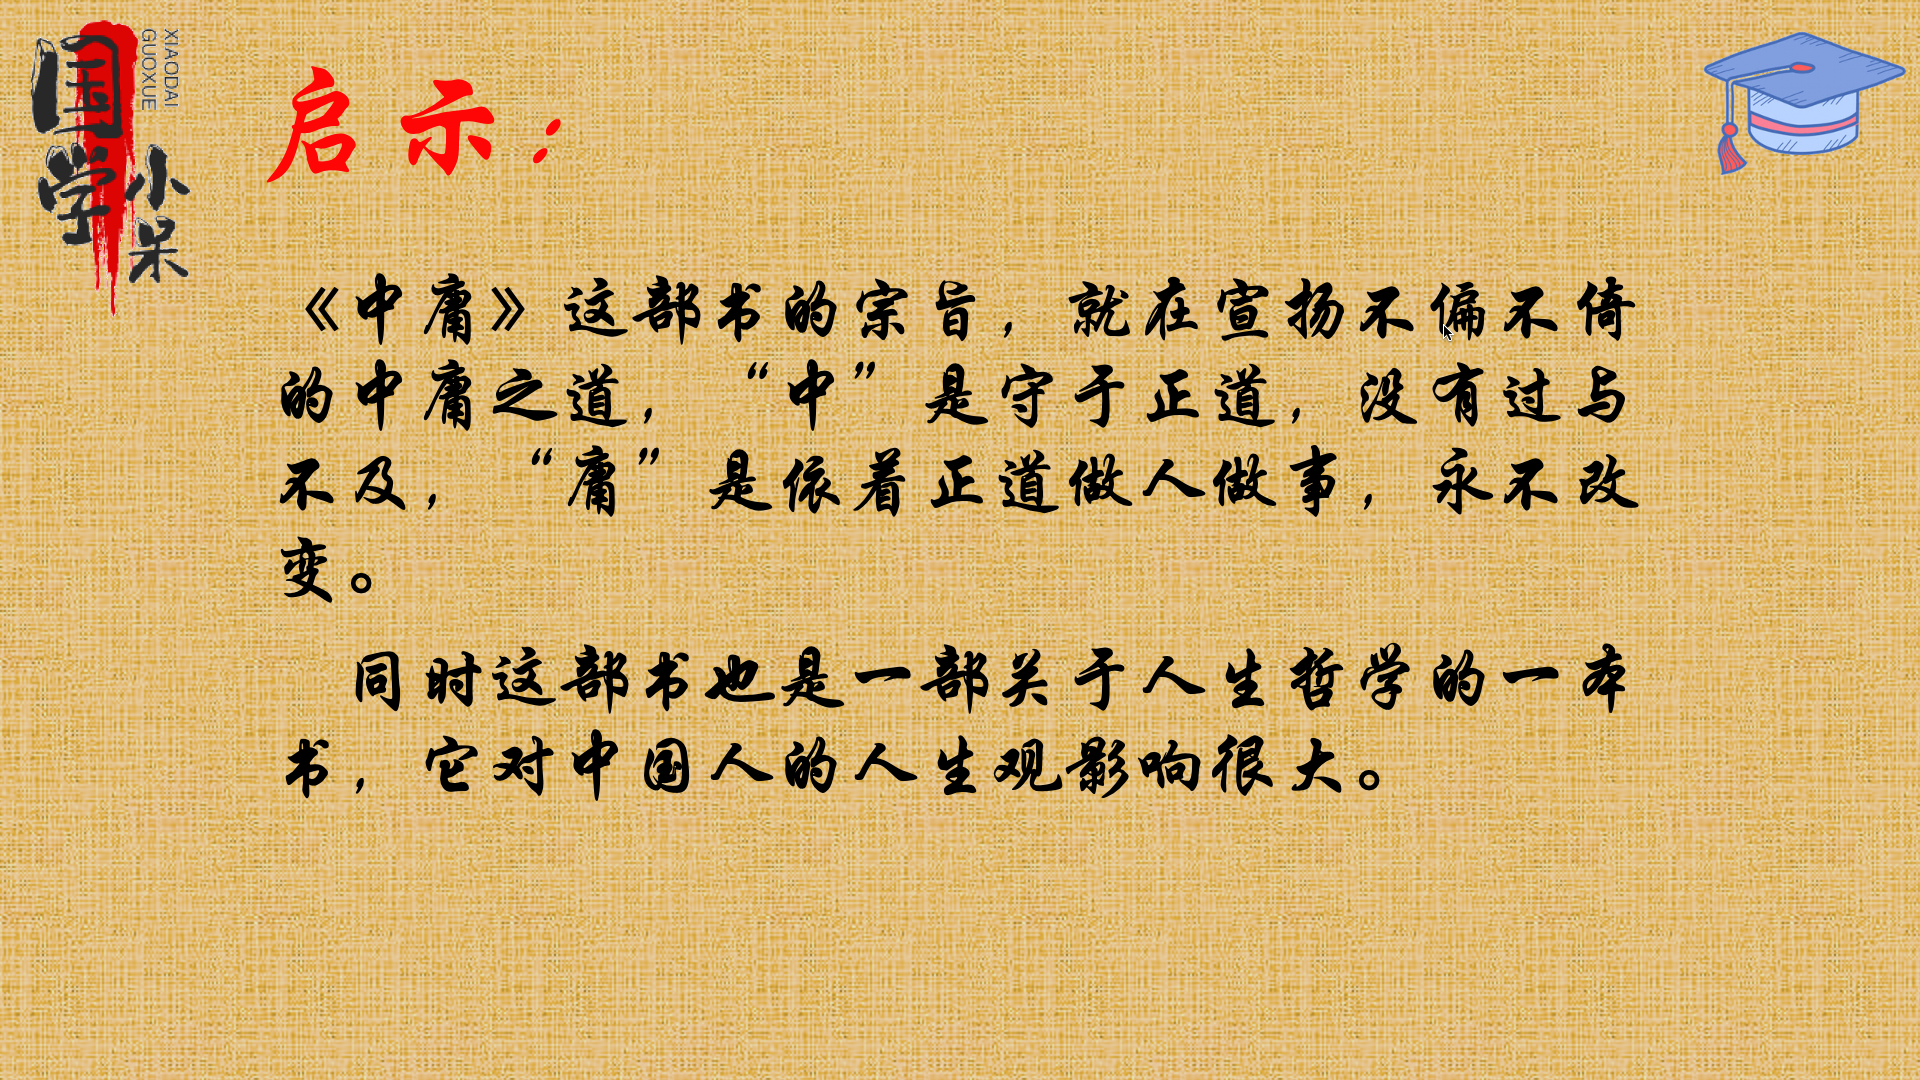 国学
小呆
XIAODAI
GUOXUE
启示：
《中庸》这部书的宗旨，就在宣扬不偏不倚
的中庸之道，“中”是守于正道，没有过与
不及，“庸”是依着正道做人做事，永不改
变。
同时这部书也是一部关于人生哲学的一本
书，它对中国人的人生观影响很大。